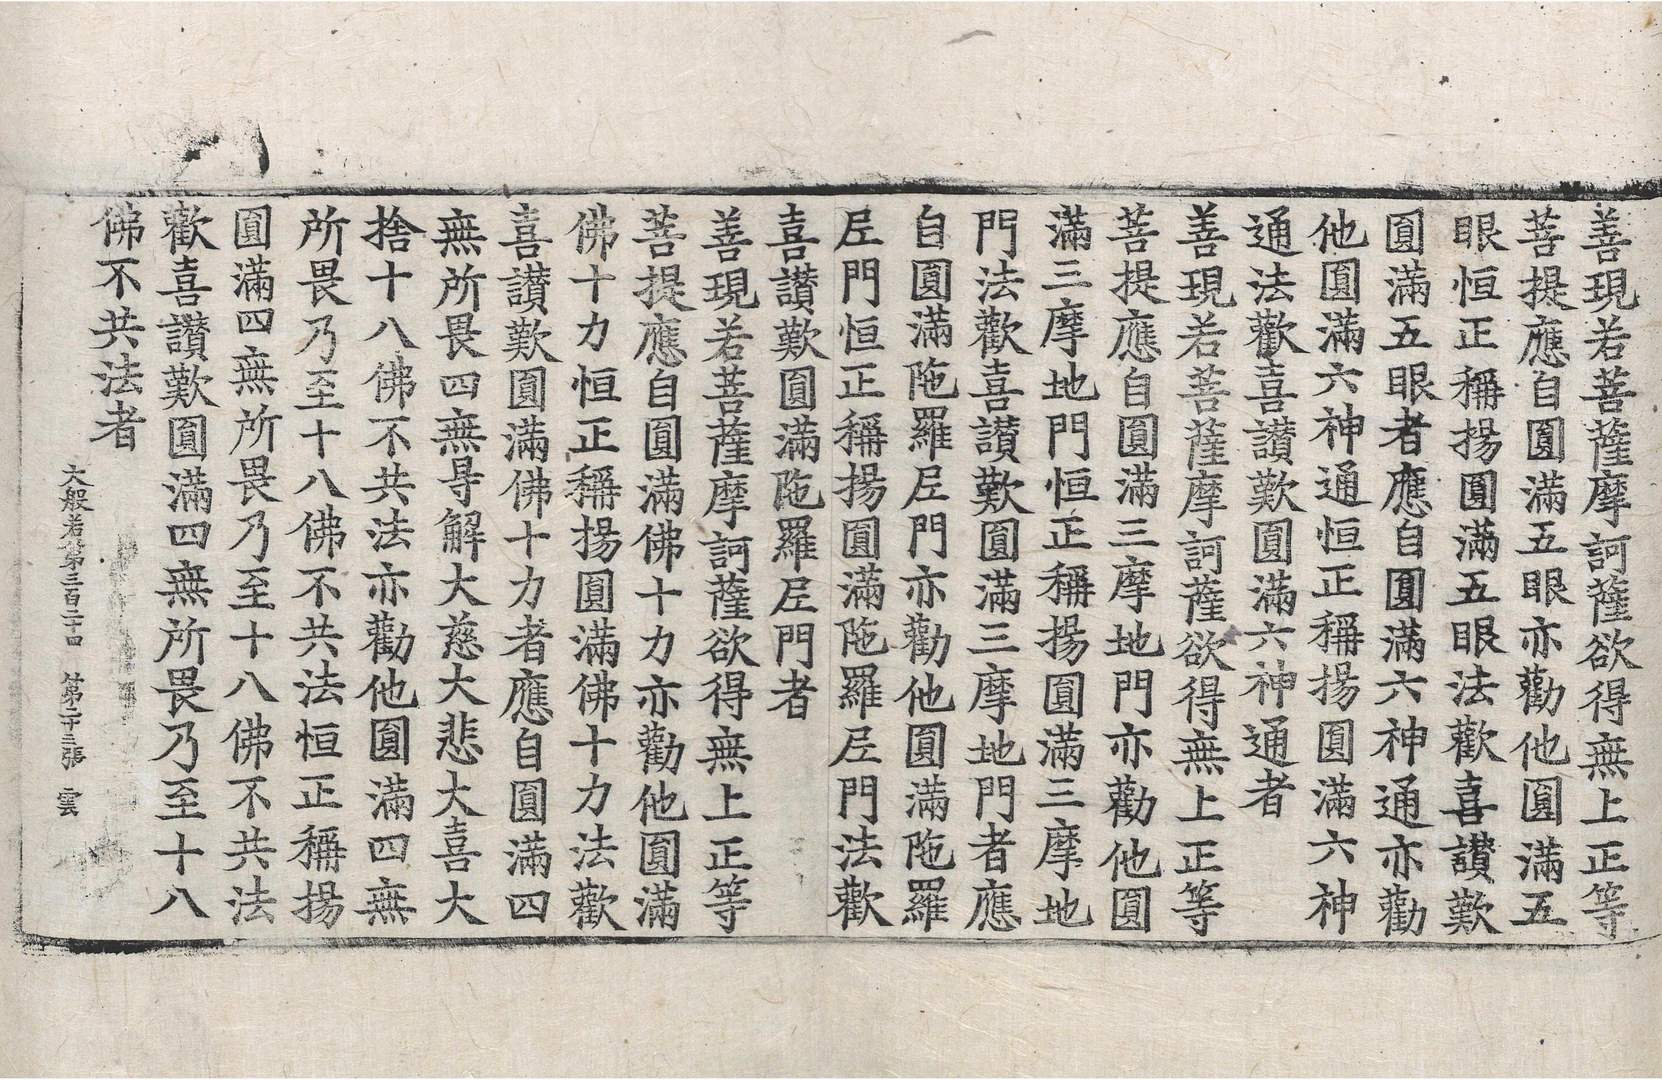 善現若菩薩摩訶薩欲得無上正等
菩提應自圓滿五眼亦勸他圓滿五
眼恒正稱揚圓滿五眼法歡喜讃歎
圓滿五眼者應自圓滿六神通亦勸
他圓滿六神通恒正稱揚圓滿六神
通法歡喜讃歎圓滿六神通者
善現若菩薩摩訶薩欲得無上正等
菩提應自圓滿三摩地門亦勸他圓
滿三摩地門恒正稱揚圓滿三摩地
門法歡喜讃歎圓滿三摩地門者應
自圓滿陁羅𡰱門亦勸他圓滿陁羅
𡰱門恒正稱揚圓滿陁羅𡰱門法歡
喜讃歎圓滿陁羅𡰱門者
善現若菩薩摩訶薩欲得無上正等
菩提應自圓滿佛十力亦勸他圓滿
佛十力恒正稱揚圓滿佛十力法歡
喜讃歎圓滿佛十力者應自圓滿四
無所畏四無㝵解大慈大悲大喜大
捨十八佛不共法亦勸他圓滿四無
所畏乃至十八佛不共法恒正稱揚
圓滿四無所畏乃至十八佛不共法
歡喜讃歎圓滿四無所畏乃至十八
佛不共法者
大般若第三百二十四 第二十三張 雲